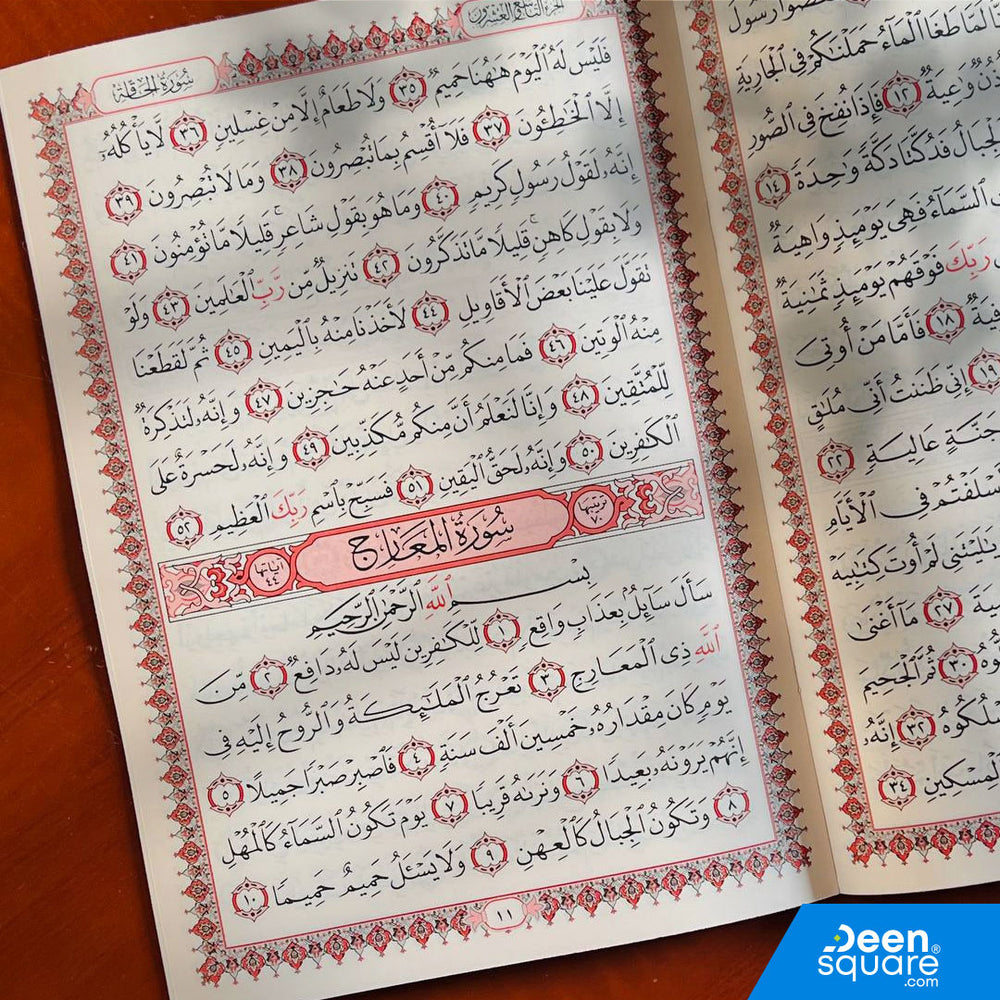 فَعَصَوْا۟ رَسُولَ
لَمَّا طَغَا ٱلْمَآءُ حَمَلْنَٰكُمْ فِى ٱلْجَارِيَةِ
أُذُنٌ وَٰعِيَةٌ ١٢ فَإِذَا نُفِخَ فِى ٱلصُّورِ
وَٱلْجِبَالُ فَدُكَّتَا دَكَّةً وَٰحِدَةً ١٤
ٱلسَّمَآءُ فَهِىَ يَوْمَئِذٍ وَاهِيَةٌ
رَبِّكَ فَوْقَهُمْ يَوْمَئِذٍ ثَمَٰنِيَةٌ
١٨ فَأَمَّا مَنْ أُوتِىَ
١٩ إِنِّى ظَنَنتُ أَنِّى مُلَٰقٍ
جَنَّةٍ عَالِيَةٍ ٢٢
أَسْلَفْتُمْ فِى ٱلْأَيَّامِ
يَٰلَيْتَنِى لَمْ أُوتَ كِتَٰبِيَهْ
٢٧ مَآ أَغْنَىٰ
٣٠ ثُمَّ ٱلْجَحِيمَ
فَٱسْلُكُوهُ ٣٢ إِنَّهُۥ
ٱلْمِسْكِينِ ٣٤
الجزء التاسع والعشرون
سُورَةُ الحَاقَّةِ
فَلَيْسَ لَهُ ٱلْيَوْمَ هَٰهُنَا حَمِيمٌ ٣٥ وَلَا طَعَامٌ إِلَّا مِنْ غِسْلِينٍ ٣٦ لَّا يَأْكُلُهُۥٓ
إِلَّا ٱلْخَٰطِـُٔونَ ٣٧ فَلَآ أُقْسِمُ بِمَا تُبْصِرُونَ ٣٨ وَمَا لَا تُبْصِرُونَ ٣٩
إِنَّهُۥ لَقَوْلُ رَسُولٍ كَرِيمٍ ٤٠ وَمَا هُوَ بِقَوْلِ شَاعِرٍ ۚ قَلِيلًا مَّا تُؤْمِنُونَ ٤١
وَلَا بِقَوْلِ كَاهِنٍ ۚ قَلِيلًا مَّا تَذَكَّرُونَ ٤٢ تَنزِيلٌ مِّن رَّبِّ ٱلْعَٰلَمِينَ ٤٣ وَلَوْ
تَقَوَّلَ عَلَيْنَا بَعْضَ ٱلْأَقَاوِيلِ ٤٤ لَأَخَذْنَا مِنْهُ بِٱلْيَمِينِ ٤٥ ثُمَّ لَقَطَعْنَا
مِنْهُ ٱلْوَتِينَ ٤٦ فَمَا مِنكُم مِّنْ أَحَدٍ عَنْهُ حَٰجِزِينَ ٤٧ وَإِنَّهُۥ لَتَذْكِرَةٌ
لِّلْمُتَّقِينَ ٤٨ وَإِنَّا لَنَعْلَمُ أَنَّ مِنكُم مُّكَذِّبِينَ ٤٩ وَإِنَّهُۥ لَحَسْرَةٌ عَلَى
ٱلْكَٰفِرِينَ ٥٠ وَإِنَّهُۥ لَحَقُّ ٱلْيَقِينِ ٥١ فَسَبِّحْ بِٱسْمِ رَبِّكَ ٱلْعَظِيمِ ٥٢
ترتيبها ٧٠ سُورَةُ المَعَارِجِ آياتها ٤٤
بِسْمِ ٱللَّهِ ٱلرَّحْمَٰنِ ٱلرَّحِيمِ
سَأَلَ سَآئِلٌۢ بِعَذَابٍ وَاقِعٍ ١ لِّلْكَٰفِرِينَ لَيْسَ لَهُۥ دَافِعٌ ٢ مِّنَ
ٱللَّهِ ذِى ٱلْمَعَارِجِ ٣ تَعْرُجُ ٱلْمَلَٰٓئِكَةُ وَٱلرُّوحُ إِلَيْهِ فِى
يَوْمٍ كَانَ مِقْدَارُهُۥ خَمْسِينَ أَلْفَ سَنَةٍ ٤ فَٱصْبِرْ صَبْرًا جَمِيلًا ٥
إِنَّهُمْ يَرَوْنَهُۥ بَعِيدًا ٦ وَنَرَىٰهُ قَرِيبًا ٧ يَوْمَ تَكُونُ ٱلسَّمَآءُ كَٱلْمُهْلِ
٨ وَتَكُونُ ٱلْجِبَالُ كَٱلْعِهْنِ ٩ وَلَا يَسْـَٔلُ حَمِيمٌ حَمِيمًا ١٠
١١
Deen
square®
.com